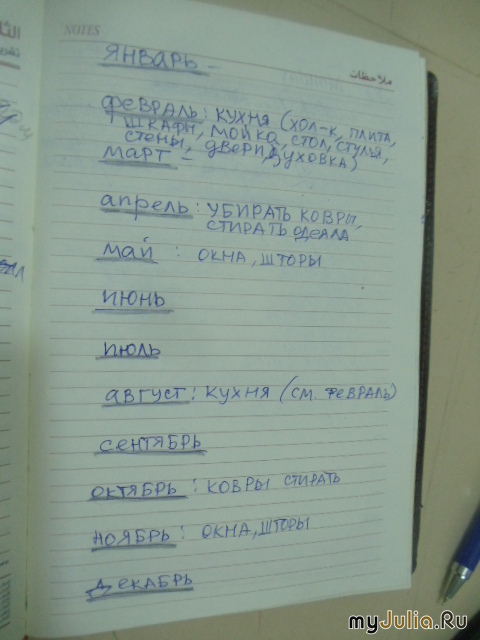 NOTES
ملاحظات
ЯНВАРЬ -
ФЕВРАЛЬ: КУХНЯ (ХОЛ-К, ПЛИТА,
ШКАФЫ, МОЙКА, СТОЛ, СТУЛЬЯ,
СТЕНЫ, ДВЕРИ, ДУХОВКА)
МАРТ -
АПРЕЛЬ: УБИРАТЬ КОВРЫ,
СТИРАТЬ ОДЕАЛА
МАЙ : ОКНА, ШТОРЫ
ИЮНЬ
ИЮЛЬ
АВГУСТ: КУХНЯ (СМ. ФЕВРАЛЬ)
СЕНТЯБРЬ
ОКТЯБРЬ : КОВРЫ СТИРАТЬ
НОЯБРЬ: ОКНА, ШТОРЫ
ДЕКАБРЬ
myJulia.Ru